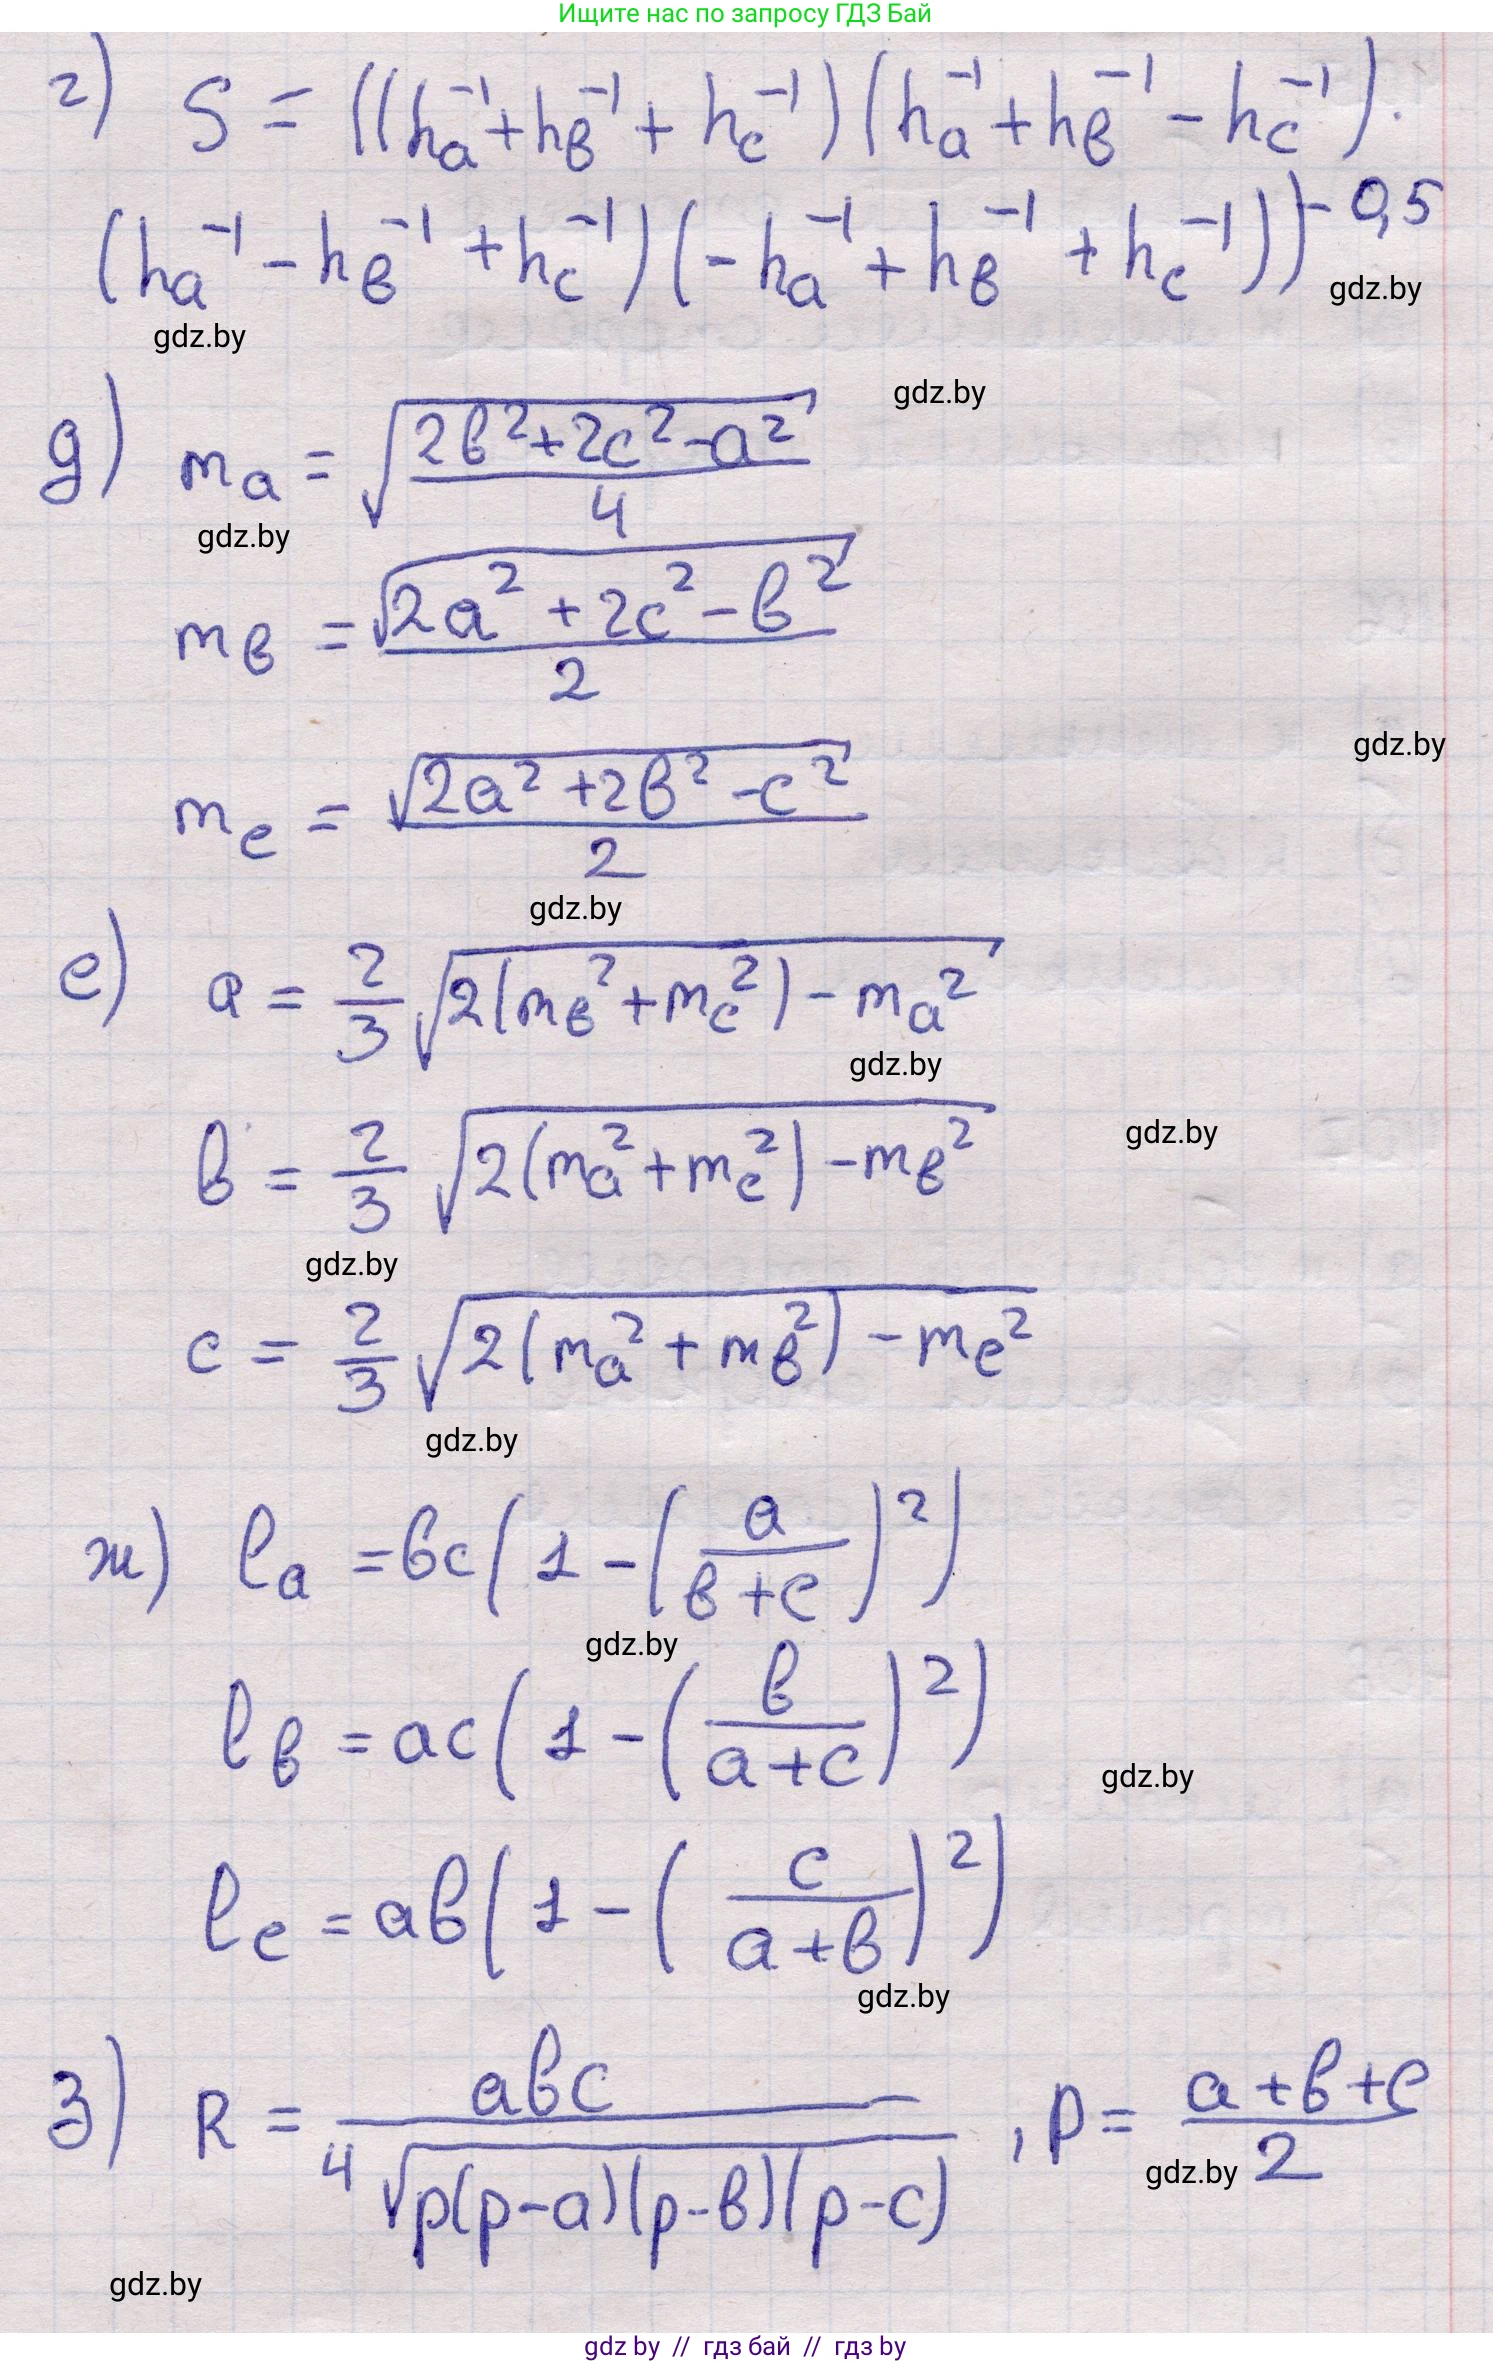 Ищите нас по запросу ГДЗ Бай
г) S = ((hₐ⁻¹ + h_в⁻¹ + h_c⁻¹)(hₐ⁻¹ + h_в⁻¹ − h_c⁻¹)·
(hₐ⁻¹ − h_в⁻¹ + h_c⁻¹)(−hₐ⁻¹ + h_в⁻¹ + h_c⁻¹))^−0,5
gdz.by
gdz.by
gdz.by
д) mₐ = √((2в² + 2c² − a²)/4)
gdz.by
m_в = √(2a² + 2c² − в²)/2
gdz.by
m_c = √(2a² + 2в² − c²)/2
gdz.by
е) a = 2/3 √(2(m_в² + m_c²) − mₐ²)
gdz.by
gdz.by
в = 2/3 √(2(mₐ² + m_c²) − m_в²)
gdz.by
c = 2/3 √(2(mₐ² + m_в²) − m_c²)
gdz.by
ж) lₐ = вc(1 − (a/(в+c))²)
gdz.by
l_в = ac(1 − (в/(a+c))²)
gdz.by
l_c = aв(1 − (c/(a+в))²)
gdz.by
з) R = aвc/(4√(p(p−a)(p−в)(p−c))), p = (a+в+c)/2
gdz.by
gdz.by
gdz by // гдз бай // гдз by